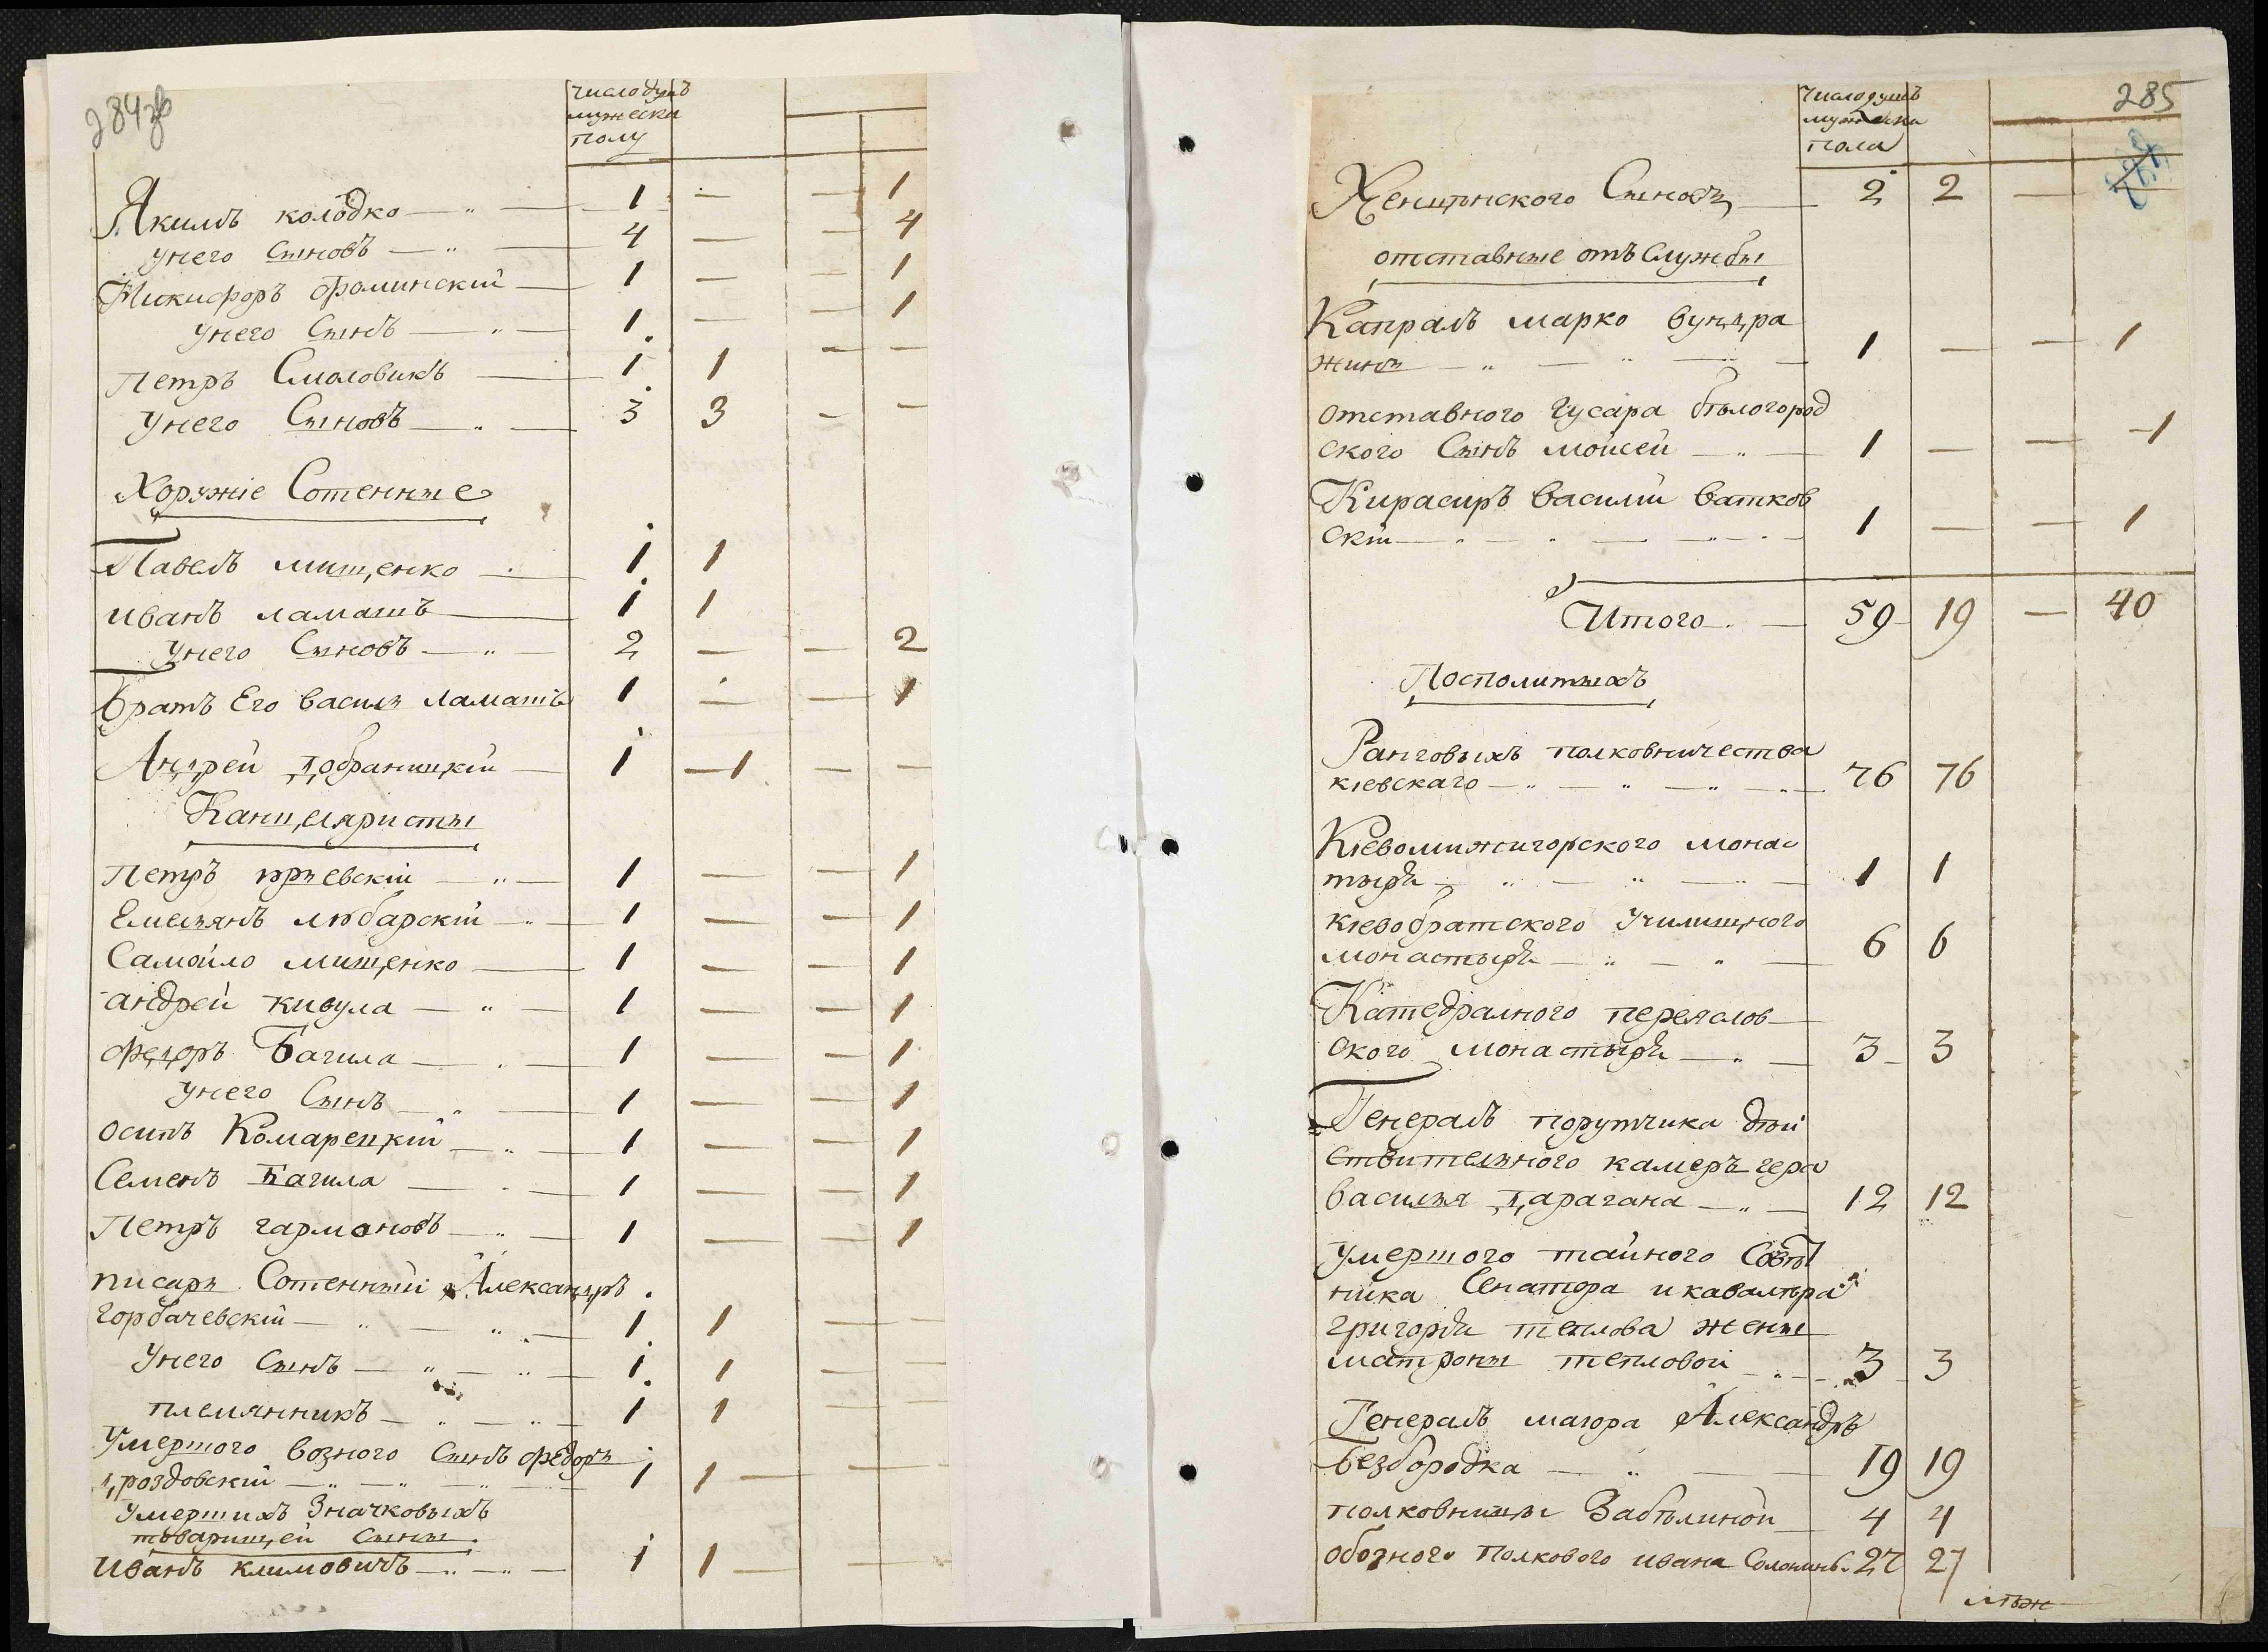 284зв
число душъ
мужеска
полу
Якимъ колодко 1 — — 1
унего Сыновъ 4 — — 4
Никифоръ фоминскій 1 — — 1
унего Сынъ 1 — — 1
Петръ Смоловикъ 1 1 — —
унего Сыновъ 3 3 — —
Хоружіе Сотенные
Павелъ мищенко 1 1
иванъ ламашъ 1 1
унего Сыновъ 2 — — 2
братъ Его василь ламашъ 1 — — 1
Андрей добраницкій 1 1 — —
Канцеляристы
Петръ юрьевскій 1 — — 1
Емельянъ любарскій 1 — — 1
Самойло мищенко 1 — — 1
андрей кивула 1 — — 1
федоръ Багила 1 — — 1
унего Сынъ 1 — — 1
осипъ Комарецкій 1 — — 1
Семенъ Багила 1 — — 1
Петръ гармановъ 1 — — 1
писарь Сотенный Александръ
горбачевскій 1 1 — —
унего Сынъ 1 1 — —
племянникъ 1 1 — —
Умершого возного Сынъ федоръ
дроздовскій 1 1 — —
Умершихъ Значковыхъ
товарищей Сыны
Иванъ климовичъ 1 1 — —
285
число душъ
мужеска
пола
Сыновъ 2 2 —
отставные отъ Службы
Капралъ марко бундра
жинъ 1 — — 1
отставного гусара бѣлогород
ского Сынъ мойсей 1 — — 1
Кирасиръ василій ватков
скій 1 — — 1
Итого 59 19 — 40
Посполитыхъ
Ранговыхъ полковничества
кіевскаго 76 76
Кіевомижигорского монас
тыря 1 1
кіевобратского Училищного
монастыря 6 6
Катедралного переяслов
ского монастыря 3 3
Генералъ порутчика дѣй
ствителного камеръ гера
василья дарагана 12 12
умершого тайного Совѣт
ника Сенатора и кавалѣра
григорія теплова жены
матроны тепловой 3 3
Генералъ маіора Александръ
Безбородка 19 19
полковницы Забѣлиной 4 4
обозного полкового ивана Солонины 27 27